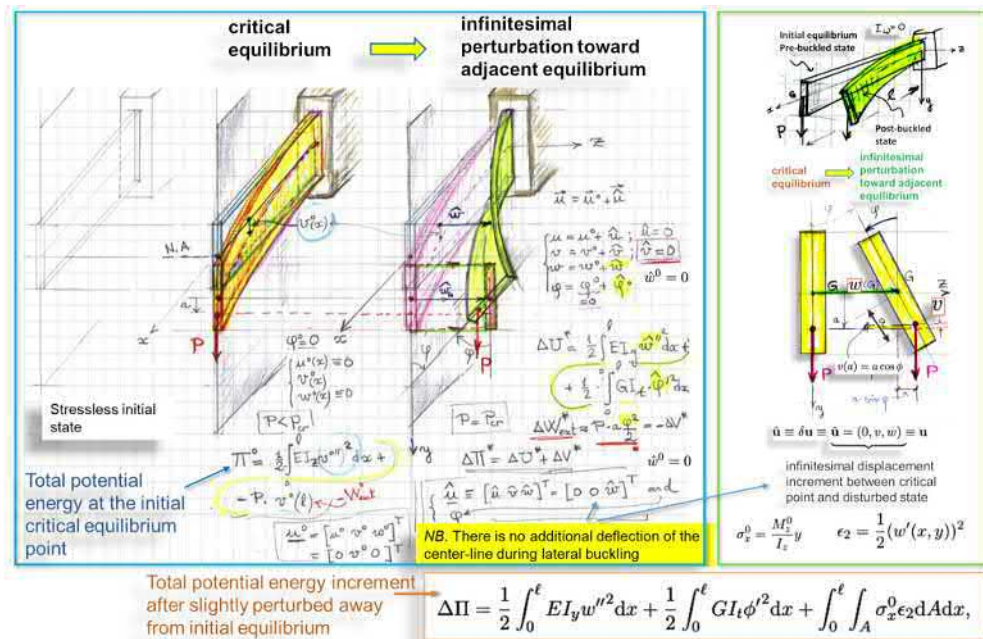 critical
equilibrium
infinitesimal
perturbation toward
adjacent equilibrium
N.A
a
x
P
φ°=0
P<P_cr
Stressless initial
state
Total potential
energy at the initial
critical equilibrium
point
Π° = 1/2 ∫ EI_z (v°'')² dx +
- P. v°(l)
u° = [u° v° w°]ᵀ
= [0 v° 0]ᵀ
z
x
φ
P
y
u = u° + û
û = 0
v = v° + v̂ ;
v̂ = 0
w = w° + ŵ
ŵ⁰ = 0
φ = φ° + φ̂
P = P_cr
ΔΠ* = ΔU* + ΔV*
ŵ⁰ = 0
û ≡ [û v̂ ŵ]ᵀ = [0 0 ŵ]ᵀ and
NB. There is no additional deflection of the
center-line during lateral buckling
Initial equilibrium
Pre-buckled state
I_ω=0
z
G
x
l
y
P
Post-buckled
state
critical
equilibrium
infinitesimal
perturbation
toward adjacent
equilibrium
φ
G
w
G
a
v
v(a) = a cos φ
P
P
y
a sin φ
û ≡ δu ≡ û = (0, v, w) ≡ u
infinitesimal displacement
increment between critical
point and disturbed state
σ_x^0 = M_z^0/I_z y
ϵ₂ = 1/2 (w′(x, y))²
Total potential energy increment
after slightly perturbed away
from initial equilibrium
ΔΠ = 1/2 ∫_0^ℓ EI_y w″² dx + 1/2 ∫_0^ℓ GI_t ϕ′² dx + ∫_0^ℓ ∫_A σ_x^0 ϵ₂ dA dx,